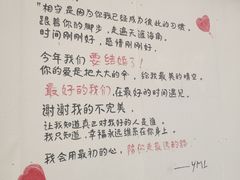 "相守是因为你我已经成为彼此的习惯.
跟着你的脚步,走遍天涯海角.
时间刚刚好,感情刚刚好.
今年我们 要结婚了!
你的爱是把大大的伞,给我最美的晴空.
最好的我们,在最好的时间遇见.
谢谢我的不完美.
让我知道真正对我好的人是谁.
我只知道,幸福永远维系在你身上.
我会用最初的心,陪你走最远的路
——YML